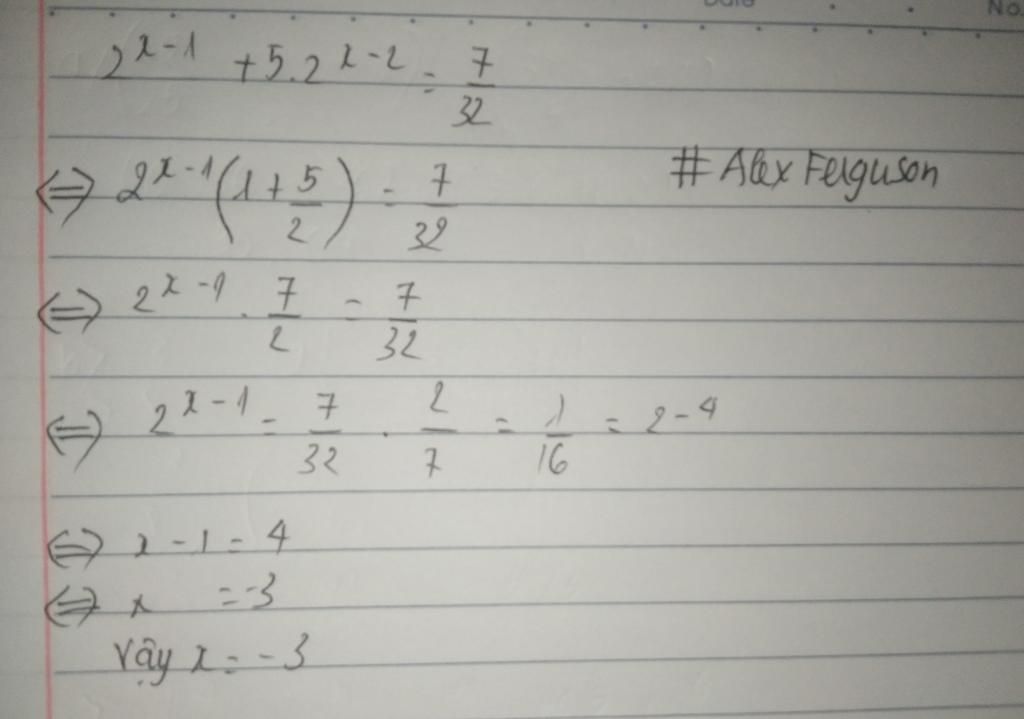 Date No.
2^{x-1} + 5.2^{x-2} = 7/32
⇔ 2^{x-1}(1 + 5/2) = 7/32
# Alex Ferguson
⇔ 2^{x-1} . 7/2 = 7/32
⇔ 2^{x-1} = 7/32 . 2/7 = 1/16 = 2^{-4}
⇔ x - 1 = 4
⇔ x = -3
Vậy x = -3